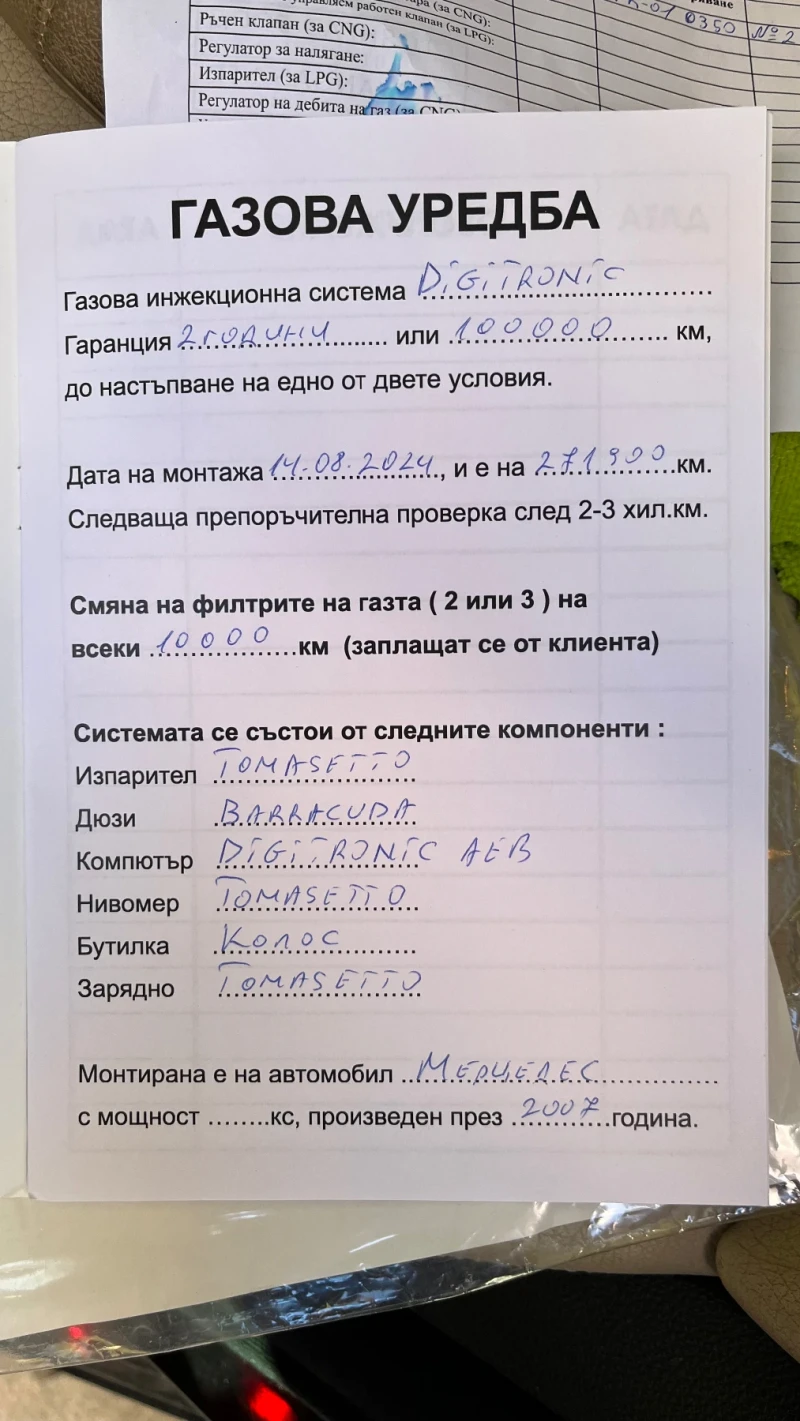 управляем работен клапан (за LPG):
Ръчен клапан (за CNG):
Регулатор за налягане:
Изпарител (за LPG):
Регулатор на дебита на газ (за CNG)
0350 №2
ГАЗОВА УРЕДБА
Газова инжекционна система DiGiTRONiC
Гаранция 2 ГОДИНИ или 100000 км,
до настъпване на едно от двете условия.
Дата на монтажа 14.08.2024, и е на 271900 км.
Следваща препоръчителна проверка след 2-3 хил.км.
Смяна на филтрите на газта ( 2 или 3 ) на
всеки 10000 км (заплащат се от клиента)
Системата се състои от следните компоненти :
Изпарител TOMASETTO
Дюзи BARRACUDA
Компютър DiGiTRONiC AEB
Нивомер TOMASETTO
Бутилка Колос
Зарядно TOMASETTO
Монтирана е на автомобил МЕРЦЕДЕС
с мощност ........кс, произведен през 2007 година.